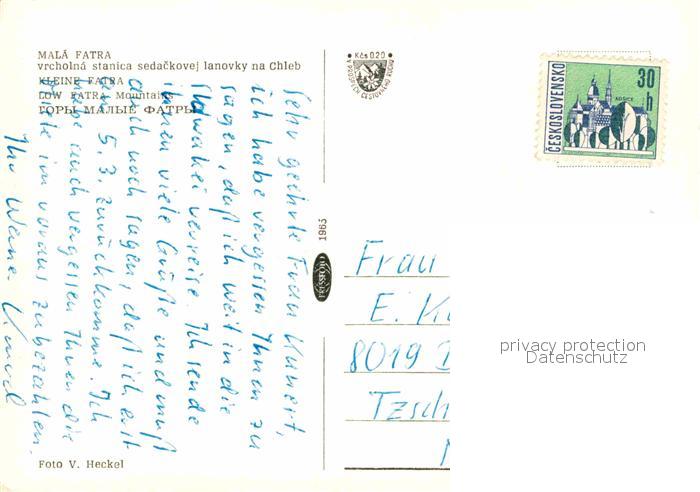 MALÁ FATRA
vrcholná stanica sedačkovej lanovky na Chleb
KLEINE FATRA
LOW FATRA Mountains
ГОРЫ МАЛЫЕ ФАТРЫ
Kčs 0,20
Sehr geehrte Frau Kunert,
ich habe vergessen Ihnen zu
sagen, daß ich weit in die
Slowakei verreise. Ich sende
Ihnen viele Grüße und muß
auch noch sagen, daß ich erst
am 5.3. zurückkomme. Ich
habe auch vergessen Ihnen die
Miete im voraus zu bezahlen.
Ihr
PRESSFOTO
1965
ČESKOSLOVENSKO
30
h
KOŠICE
Frau
E. Ku
8019 D
Tzsch
privacy protection
Datenschutz
Foto V. Heckel